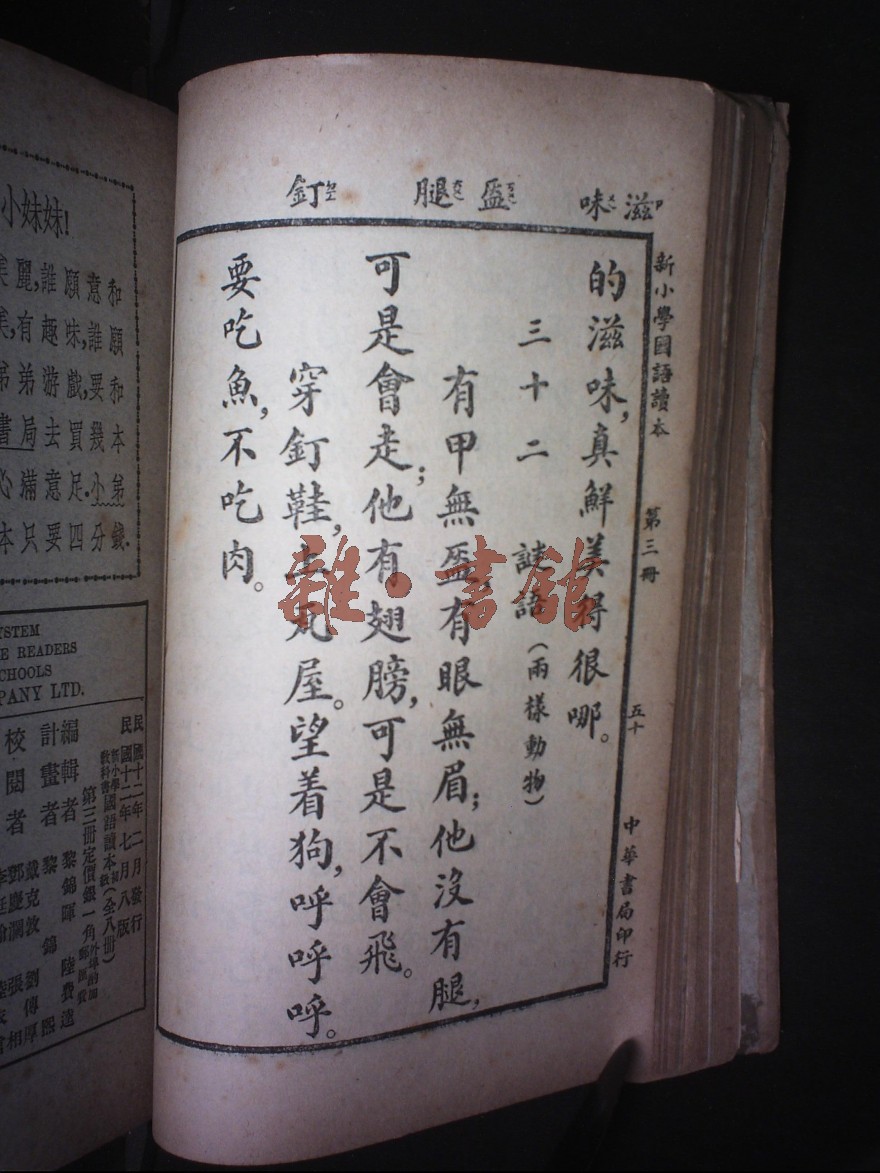 滋味
盔
腿
釘
新小學國語讀本 第三冊 五十 中華書局印行
的滋味,真鮮美得很哪。
三十二 謎語(兩樣動物)
有甲無盔,有眼無眉;他沒有腿,
可是會走;他有翅膀,可是不會飛。
穿釘鞋,
屋。望着狗,呼呼呼。
要吃魚,不吃肉。
雜·書館
小妹妹!
麗,誰願意和
美,有趣味,誰願
弟弟游戲,要和
書局去買幾本
心滿意足.小弟
本只要四分錢.
YSTEM
E READERS
CHOOLS
PANY LTD.
民國十二年二月發行
民國十二年七月八版
新小學教科書國語讀本(全八冊)
第三冊定價銀一角
編輯者 黎錦暉 陸費逵
計畫者 黎錦熙
校閱者 戴克敦 劉傳厚
鄧慶瀾 張相